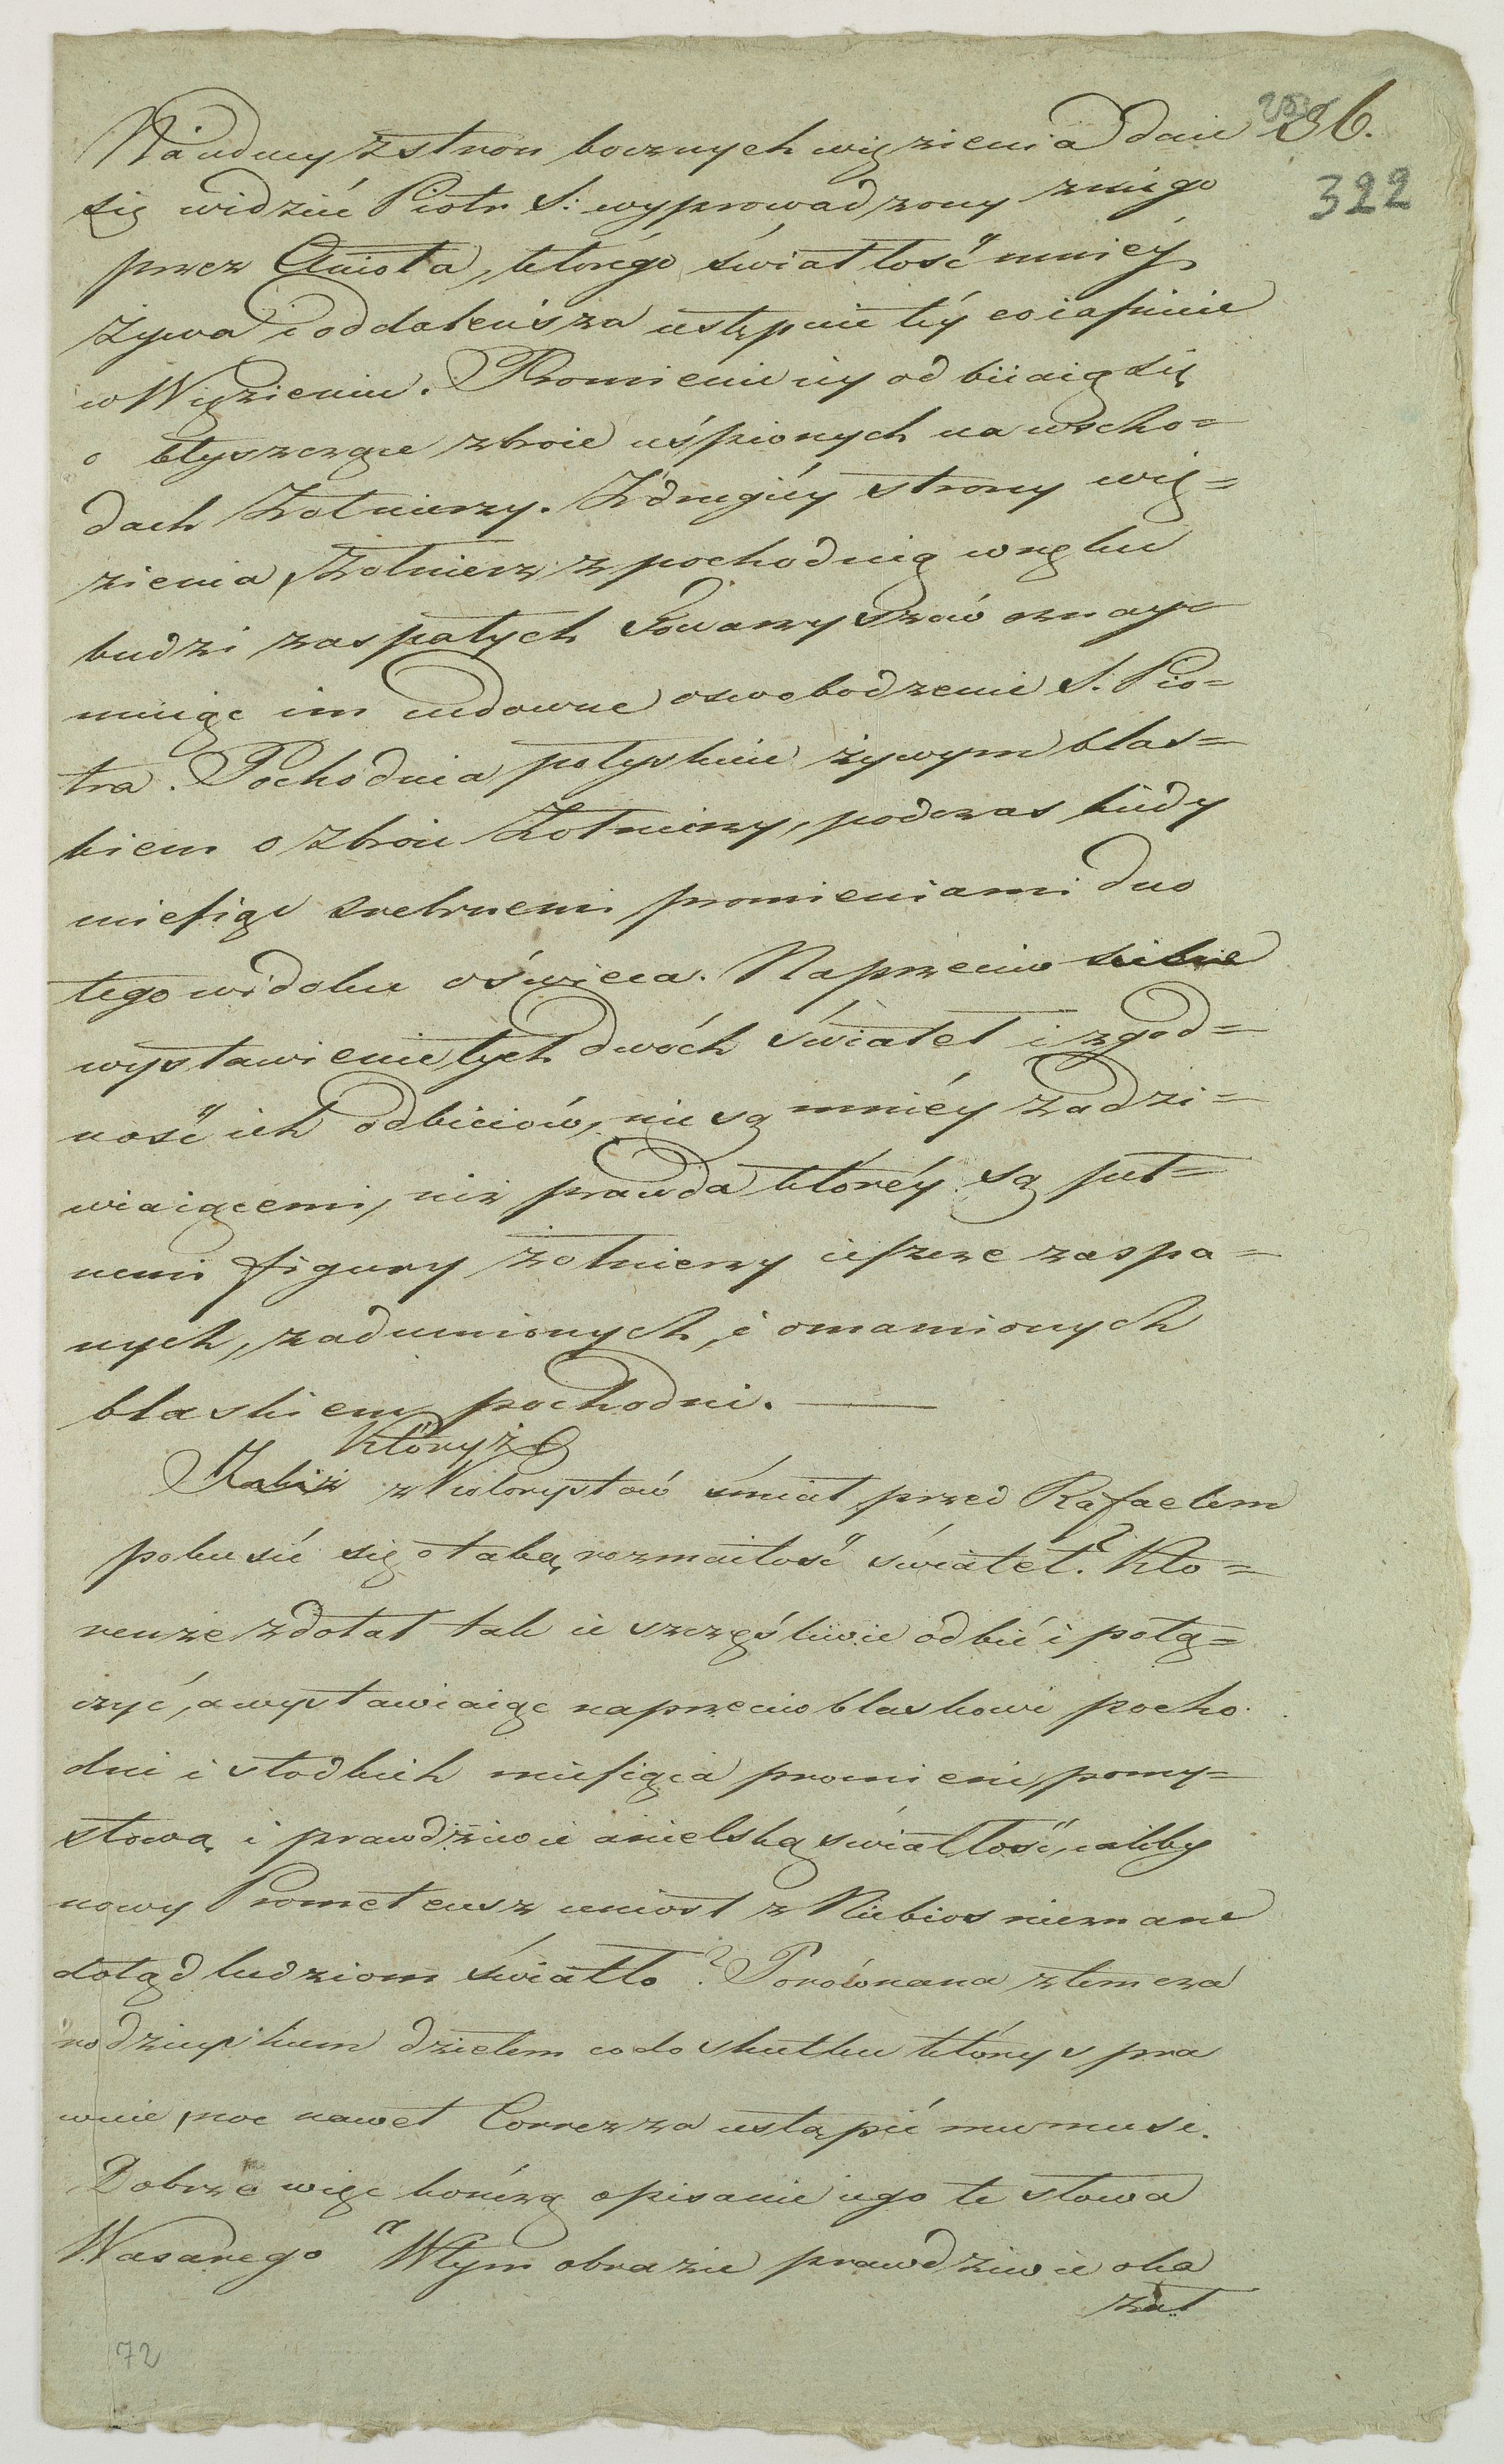 Na iedney z stron bocznych więzienia daie 36.
się widzieć Piotr S: wyprowadzony z niego 322
przez Anioła, którégo światłość mniéy
żywa i oddaleńsza ustępuie téy co iaśnieie
w Więzieniu. Promienie iéy odbiiaią się
o błyszczące zbroie uśpionych na wscho=
dach Żołnierzy. Z drugiéy strony wię=
zienia, Żołnierz z pochodnią w ręku
budzi zaspałych Towarzyszów oznay=
muiąc im cudowne oswobodzenie S. Pio=
tra. Pochodnia połyskuie żywym blas=
kiem o zbroie Żołnierzy, podczas kiedy
miesiąc srebrnemi promieniami dno
tego widoku oświeca. Naprzeciw siebie
wystawienie tych dwóch świateł i zgod=
ność ich odbiciów, nie są mniéy zadzi=
wiaiącemi, niż prawda któréy są peł=
nemi figury żołnierzy ieszcze zaspa=
nych, zadumionych, i omamionych
blaskiem pochodni. —
Któryż
z Kolorystów śmiał przed Rafaelem
pokusić się o taką rozmaitość świateł? Któ=
remuże zdołał tak ie szczęśliwie odbić i połą=
czyć, a wystawiaiąc naprzeciw blaskowi pocho
dni i słodkich miesiąca promieni, pomy=
słową i prawdziwie anielską światłość, iakby
nowy Prometeusz uniosł z Niebios nieznane
dotąd ludziom światło? Porównana z tem cza
rodzieyskiem dziełem co do skutku który spra
wuie, noc nawet Correzza ustąpić mu musi.
Dobrze więc kończą opisanie iego te słowa
Wasarego "W tym obrazie prawdziwie oka
zał
72